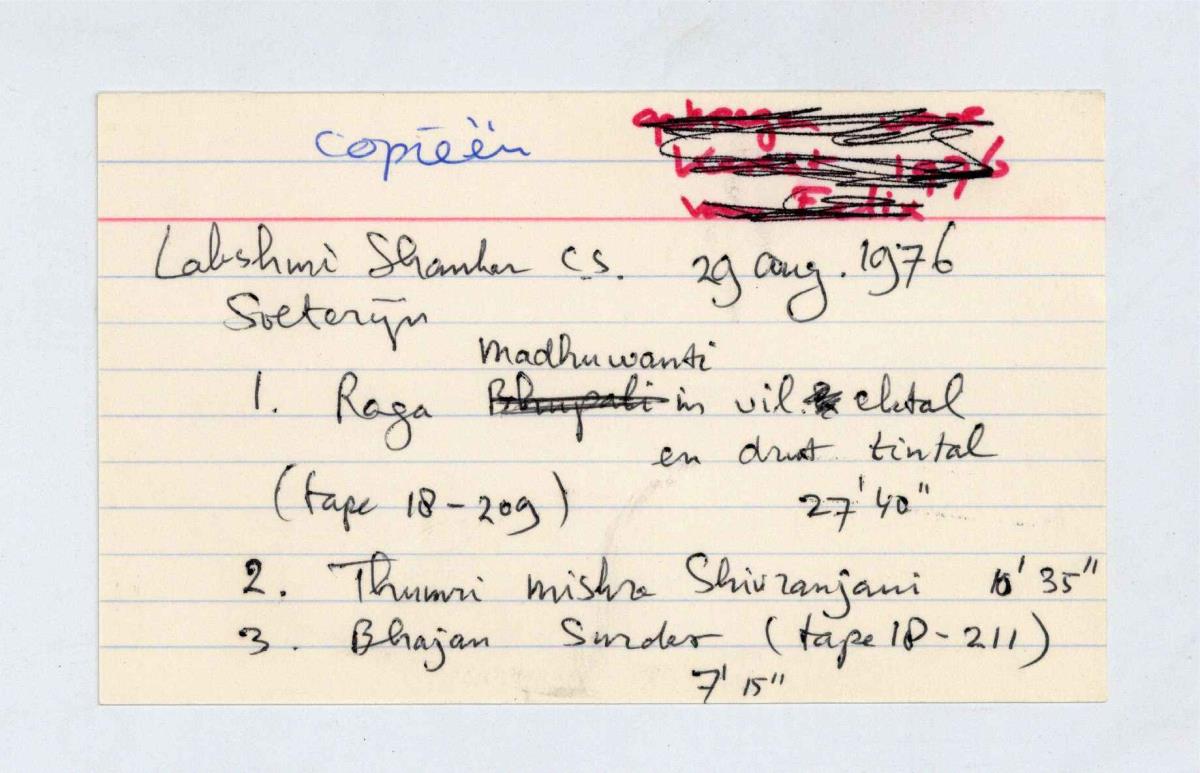 copieën
1976
Felix
Lakshmi Shankar c.s. 29 aug. 1976
Soeterijn
Madhuwanti
1. Raga Bhupali in vil. ektal
en drut tintal
(tape 18-209) 27' 40"
2. Thumri mishra Shivranjani 10' 35"
3. Bhajan Surdas (tape 18-211)
7' 15"